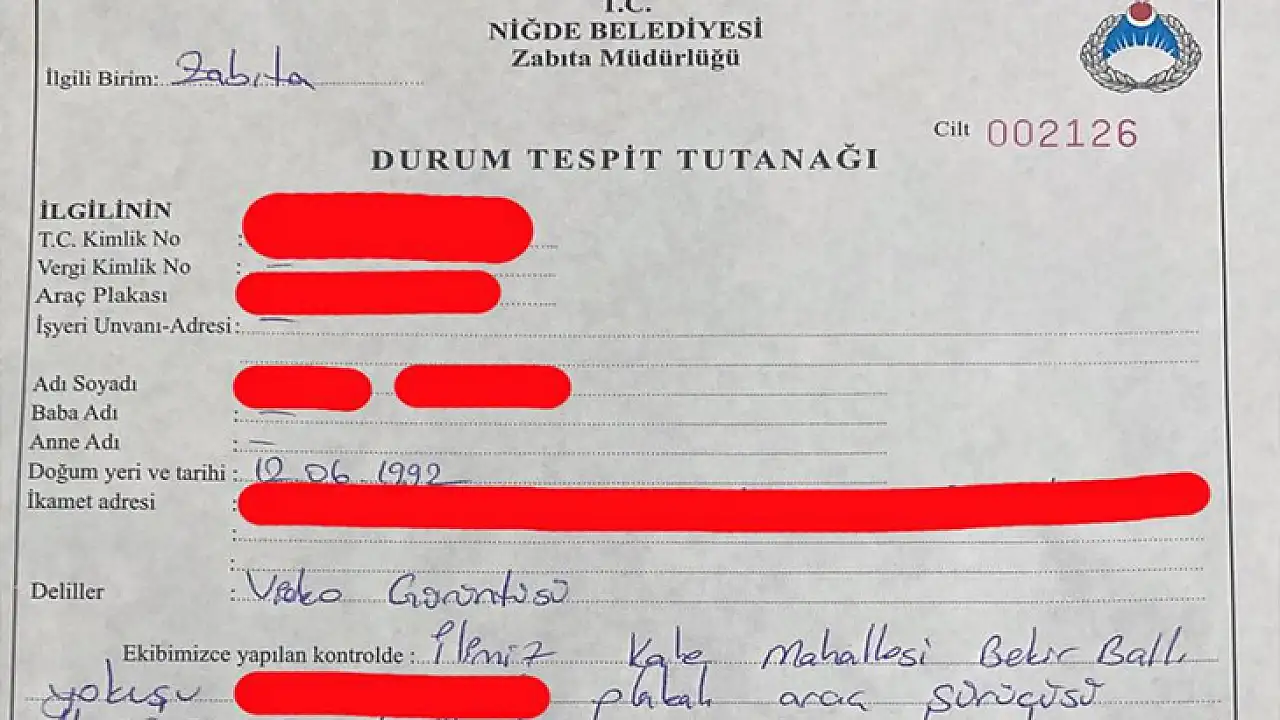 T.C.
NİĞDE BELEDİYESİ
Zabıta Müdürlüğü
İlgili Birim: Zabıta
Cilt 002126
DURUM TESPİT TUTANAĞI
İLGİLİNİN
T.C. Kimlik No :
Vergi Kimlik No : —
Araç Plakası
İşyeri Unvanı-Adresi : —
Adı Soyadı
Baba Adı : —
Anne Adı : —
Doğum yeri ve tarihi : 12.06.1992
İkamet adresi :
:
:
Deliller : Video Görüntüsü
Ekibimizce yapılan kontrolde : İlimiz Kale Mahallesi Bekir Ballı
yokuşu plakalı araç sürücüsü